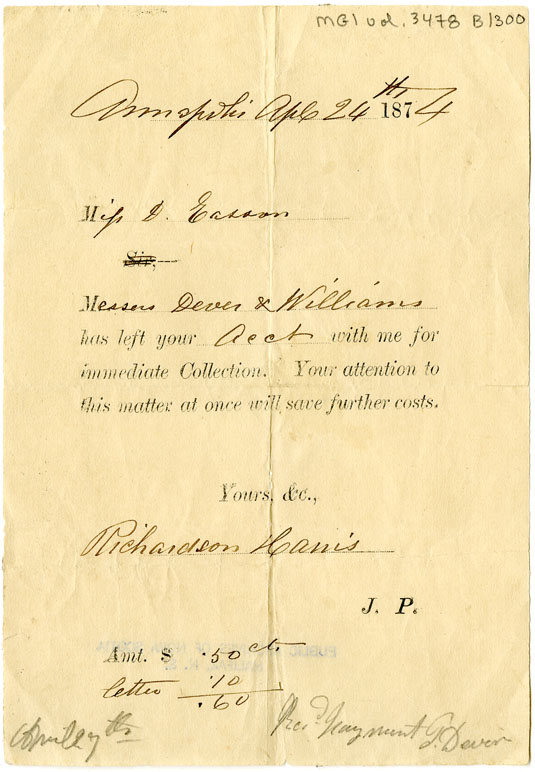 MG1 vol. 3478 B1300
Annapolis Apl 24th 1874
Miss D. Easson
Sir,
Messers Dever & Williams
has left your Acct with me for
immediate Collection. Your attention to
this matter at once will save further costs.
Yours, &c.,
Richardson Harris
J. P.
Amt. $ .50 cts
letter .10
.60
Recd Payment T. Devon